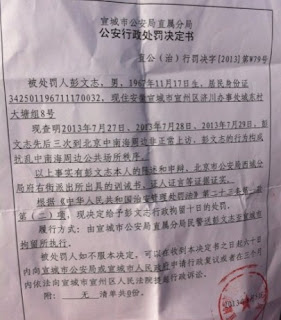 宣城市公安局直属分局
公安行政处罚决定书
宣公（治）行罚决字[2013]第#79号
被处罚人彭文志，男，1967年11月17日生，居民身份证
342501196711170032，现住安徽宣城市宣州区济川办事处城东村
大塘组8号
现查明2013年7月27日、2013年7月28日、2013年7月29日，彭
文志先后三次到北京中南海周边非正常上访，彭文志的行为构成
扰乱中南海周边公共场所秩序。
以上事实有彭文志本人的陈述和申辩、北京市公安局西城分
局府右街派出所出具的训诫书、证人证言等证据证实。
根据《中华人民共和国治安管理处罚法》第二十三条第一款
第（二）项，现决定给予彭文志行政拘留十日的处罚。
履行方式：由宣城市公安局直属分局民警送彭文志至宣城市
拘留所执行。
被处罚人如不服本决定，可以在收到本决定书之日起六十日
内向宣城市公安局或宣城市人民政府申请行政复议或者在三个月
内依法向宣城市宣州区人民法院提起行政诉讼。
附： 无 清单共0份。